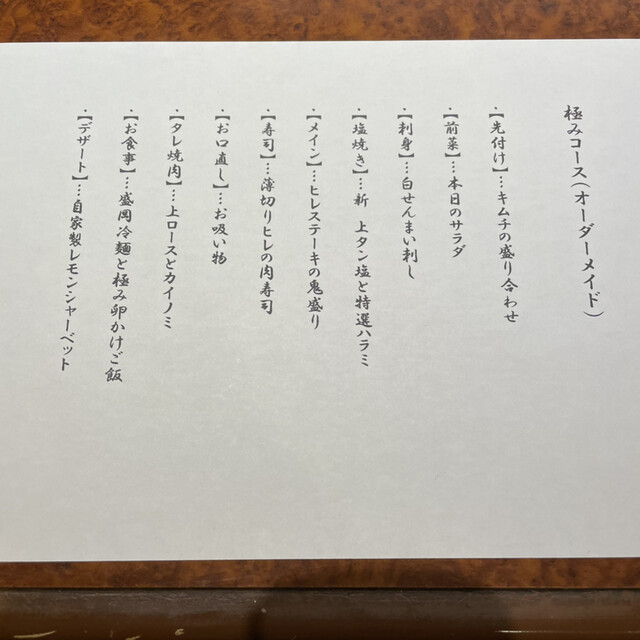 極みコース(オーダーメイド)
・【先付け】…キムチの盛り合わせ
・【前菜】…本日のサラダ
・【刺身】…白せんまい刺し
・【塩焼き】…新 上タン塩と特選ハラミ
・【メイン】…ヒレステーキの鬼盛り
・【寿司】…薄切りヒレの肉寿司
・【お口直し】…お吸い物
・【タレ焼肉】…上ロースとカイノミ
・【お食事】…盛岡冷麺と極み卵かけご飯
・【デザート】…自家製レモンシャーベット